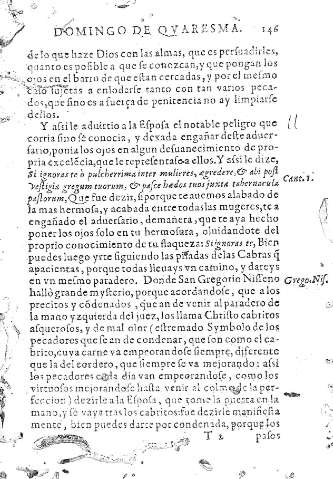 DOMINGO DE QVARESMA. 146
de lo que haze Dios con las almas, que es persuadirles,
quanto es posible a que se conozcan, y que pongan los
ojos en el barro de que estan cercadas, y por el mesmo
caso sujetas a enlodarse tanto con tan varios peca-
dos, que sino es a fuerça de penitencia no ay limpiarse
dellos.
Y assi le aduirtio a la Esposa el notable peligro que
corria sino se conocia, y dexada engañar deste aduer-
sario, ponia los ojos en algun desuanecimiento de pro-
pria excelẽcia, que le representaso a ellos. Y assi le dize,
Si ignoras te ò pulcherrima inter mulieres, egredere, & abi post
vestigia gregum tuorum, & pasce hædos tuos juxta tabernacula
pastorum, Que fue dezir, si porque te auemos alabado de
la mas hermosa, y acabada entre todas las mugeres, te a
engañado el aduersario, demanera, que te aya hecho
poner los ojos solo en tu hermosura, oluidandote del
proprio conocimiento de tu flaqueza: Si ignoras te, Bien
puedes luego yrte siguiendo las pisadas de las Cabras q̃
apacientas, porque todas lleuays vn camino, y dareys
en vn mesmo paradero. Donde San Gregorio Nisseno
hallò grande mysterio, porque acordandose, que a los
precitos y cõdenados, que an de venir al paradero de
la mano yzquierda del juez, los llama Christo cabritos
asquerosos, y de mal olor (estremado Symbolo de los
pecadores que se an de condenar, que son como el ca-
brito, cuya carne va empeorandose siempre, diferente
que la del cordero, que siempre se va mejorando: assi
los pecadores cada dia van empeorandose, como los
virtuosos mejorandose hasta venir al colmo de la per-
feccion) dezirle a la Esposa, que tome la puesta en la
mano, y se vaya tras los cabritos: fue dezirle manifiesta
mente, bien puedes darte por condenada, porque los
T 2 pasos
Cant. 1.
Grego. Nis.